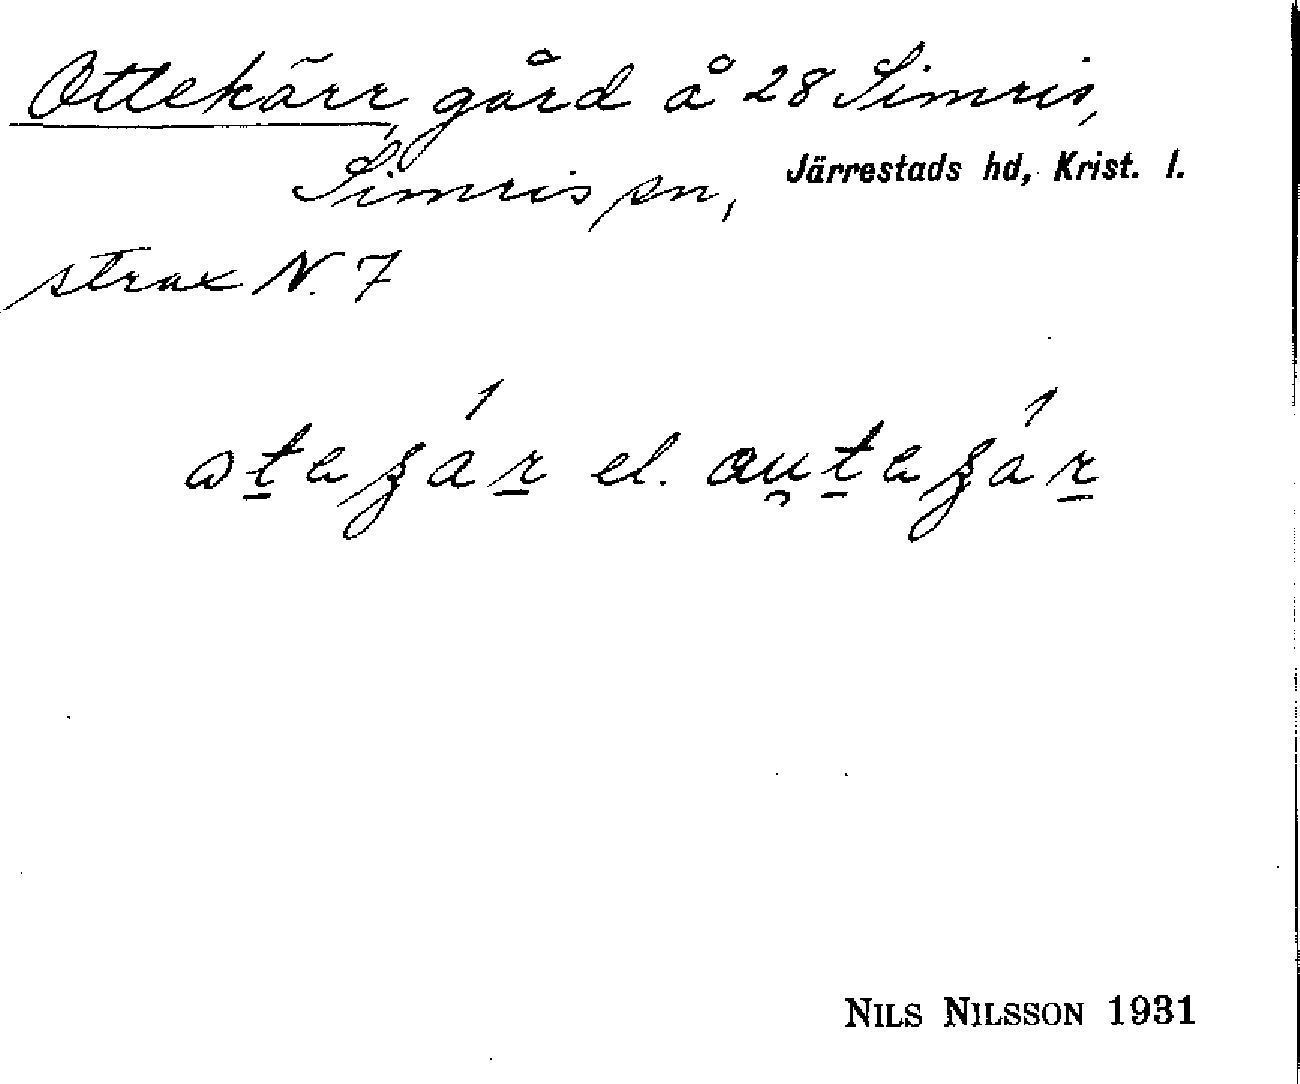 Ottekärr, gård å 28 Simris,
Simris sn, Järrestads hd, Krist. l.
strax N. 7
el.
NILS NILSSON 1931